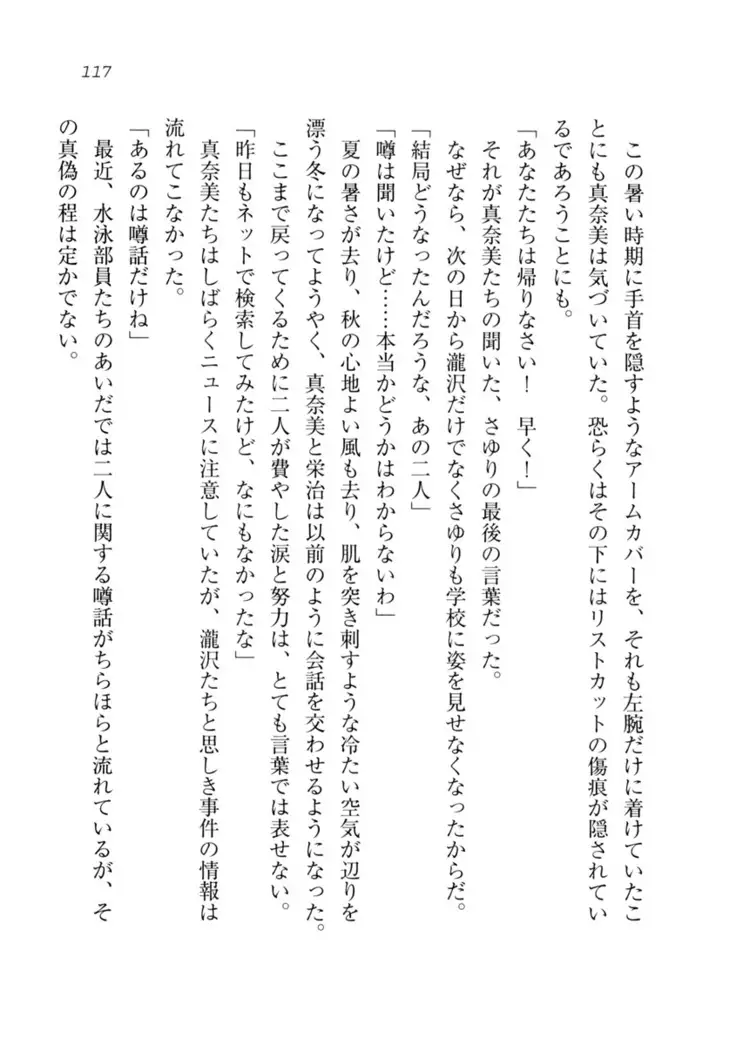 117
この暑い時期に手首を隠すようなアームカバーを、それも左腕だけに着けていたこ
とにも真奈美は気づいていた。恐らくはその下にはリストカットの傷痕が隠されてい
るであろうことにも。
「あなたたちは帰りなさい！　早く！」
それが真奈美たちの聞いた、さゆりの最後の言葉だった。
なぜなら、次の日から瀧沢だけでなくさゆりも学校に姿を見せなくなったからだ。
「結局どうなったんだろうな、あの二人」
「噂は聞いたけど……本当かどうかはわからないわ」
夏の暑さが去り、秋の心地よい風も去り、肌を突き刺すような冷たい空気が辺りを
漂う冬になってようやく、真奈美と栄治は以前のように会話を交わせるようになった。
ここまで戻ってくるために二人が費やした涙と努力は、とても言葉では表せない。
「昨日もネットで検索してみたけど、なにもなかったな」
真奈美たちはしばらくニュースに注意していたが、瀧沢たちと思しき事件の情報は
流れてこなかった。
「あるのは噂話だけね」
最近、水泳部員たちのあいだでは二人に関する噂話がちらほらと流れているが、そ
の真偽の程は定かでない。